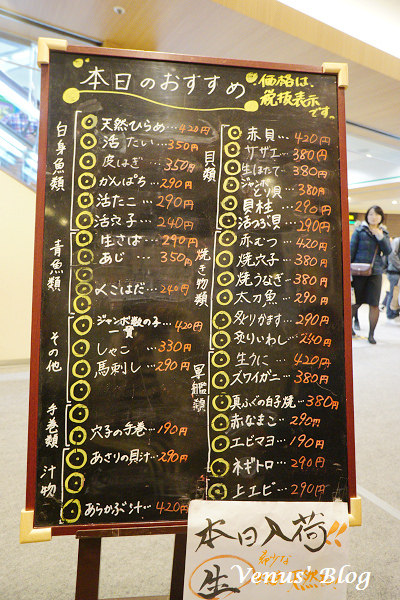 本日のおすすめ
価格は、
税抜表示
です。
白身魚類
天然ひらめ…420円
活たい…350円
皮はぎ…350円
かんぱち…290円
活たこ…290円
活穴子…240円
青魚類
生さば…290円
あじ…350円
〆こはだ…240円
その他
ジャンボ数の子…420円
しゃこ…330円
馬刺し…290円
手巻類
穴子の手巻…190円
汁物
あさりの貝汁…290円
あらかぶ汁…420円
貝類
赤貝…420円
サザエ…380円
生ほたて…380円
ジャンボとり貝…380円
貝柱…290円
活つぶ貝…290円
焼き物類
赤むつ…420円
焼穴子…380円
焼うなぎ…380円
太刀魚…290円
炙りかます…290円
炙りいわし…240円
軍艦類
生うに…420円
ズワイガニ…380円
真ふぐの白子焼…380円
赤なまこ…290円
エビマヨ…190円
ネギトロ…290円
上エビ…290円
本日入荷!!
生
Venus' Blog